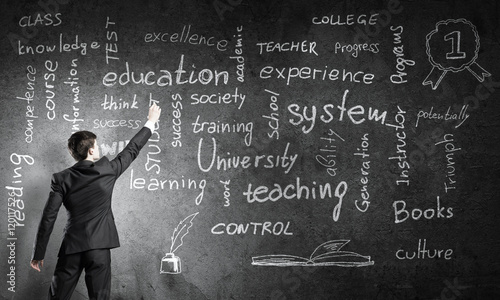 CLASS
COLLEGE
1
TEST
excellence
academic
TEACHER
Progress
Programs
knowledge
course
information
education
experience
competence
think
society
school
system
potentially
success
success
training
ability
Instructor
Triumph
University
Generation
reading
learning
work
teaching
Books
CONTROL
culture
120117526